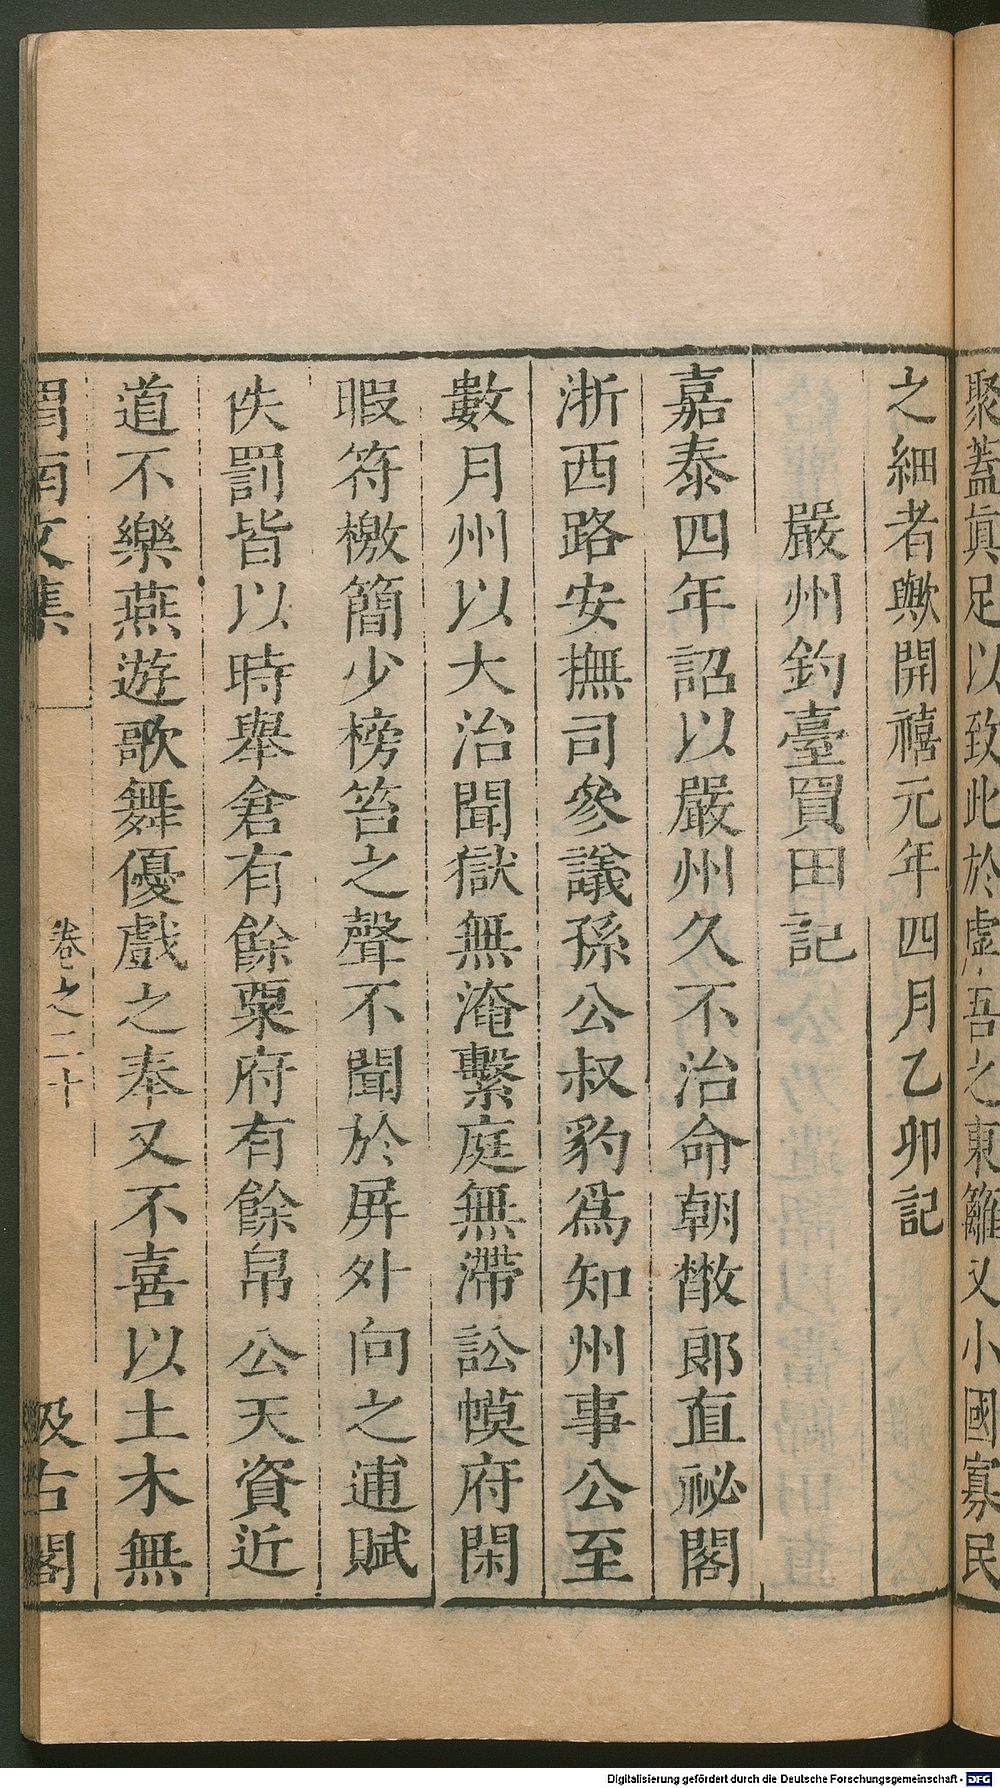 聚蓋眞足以致此於虛吾之東籬又小國寡民
之細者歟開禧元年四月乙卯記
嚴州釣臺買田記
嘉泰四年詔以嚴州久不治命朝散郎直祕閣
浙西路安撫司參議孫公叔豹爲知州事公至
數月州以大治聞獄無淹繫庭無滯訟幙府閑
暇符檄簡少榜笞之聲不聞於屏外向之逋賦
佚罰皆以時舉倉有餘粟府有餘帛公天資近
道不樂燕遊歌舞優戲之奉又不喜以土木無
渭南文集
卷之二十
汲古閣
Digitalisierung gefördert durch die Deutsche Forschungsgemeinschaft - DFG